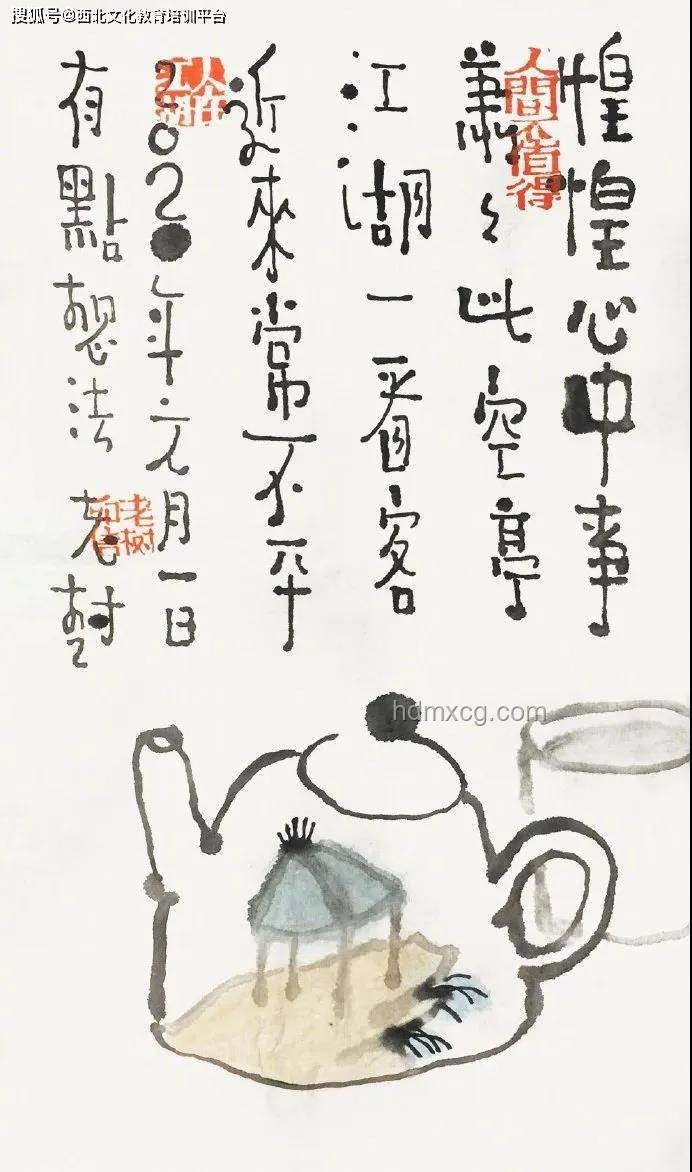 搜狐号@西北文化教育培训平台
惶惶心中事
蕭々此空亭
江湖一看客
近來常不平
2020年元月一日
有點想法 老樹
人間不值得
人在江湖
老树印信
hdmxcg.com